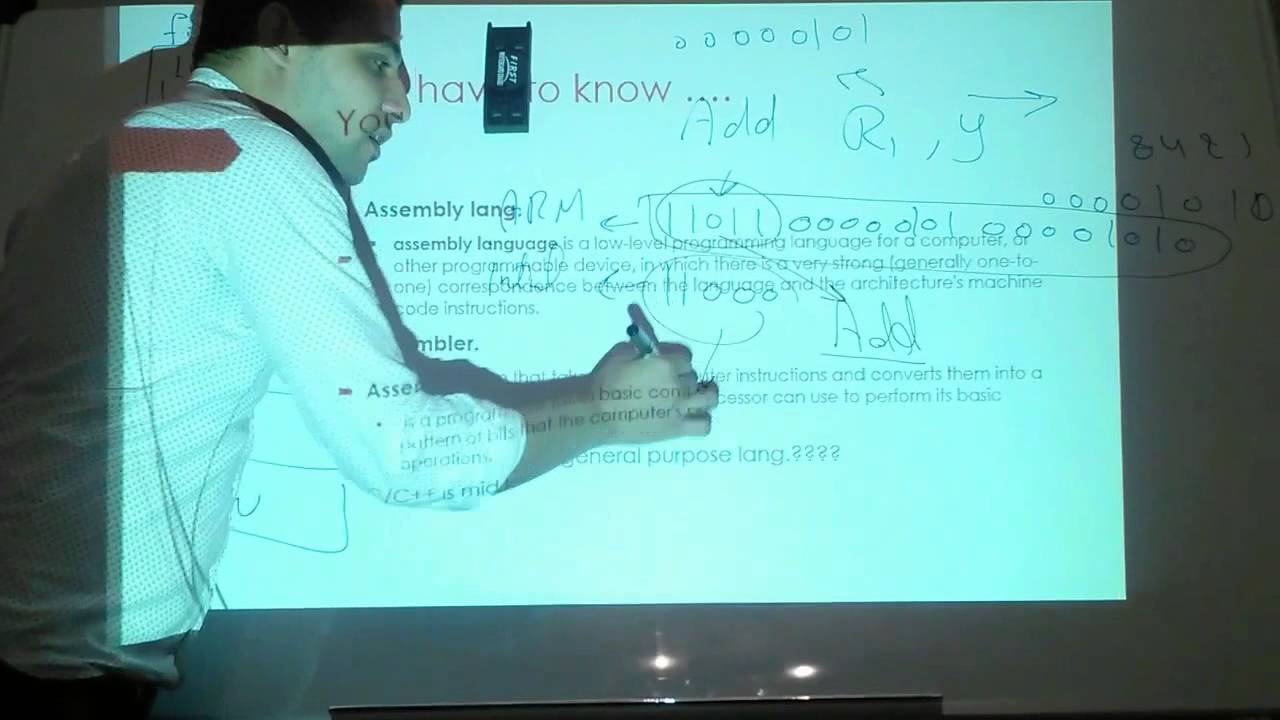 00000101
You have to know ....
FIRST
Add R1, y
8421
Assembly lang.
ARM
00001010
11011 00000101 00001010
assembly language is a low-level programming language for a computer, or
other programmable device, in which there is a very strong (generally one-to-
one) correspondence between the language and the architecture's machine
code instructions.
11000
Add
mbler.
Asse that ter instructions and converts them into a
is a program basic comp cessor can use to perform its basic
pattern of bits that the computer's
operations.
general purpose lang.????
C/C++ is mid